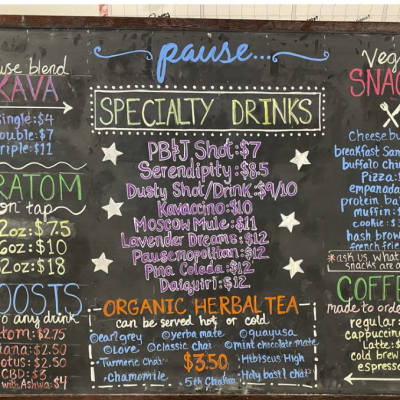 pause...
use blend
KAVA
single: $4
ouble: $7
riple: $11
RATOM
on tap
2oz: $7.5
6oz: $10
2oz: $18
OOSTS
o any drink
tom: $2.75
iana: $2.50
otus: $2.50
CBD: $3
with Ashwa: $4
SPECIALTY DRINKS
PB&J Shot: $7
Serendipity: $8.5
Dusty Shot/Drink: $9/10
Kavaccino: $10
Moscow Mule: $11
Lavender Dreams: $12
Pausemopolitan: $12
Pina Colada: $12
Dalaygirl: $12
ORGANIC HERBAL TEA
can be served hot or cold
earl grey yerba mate guayusa
Love classic chai mint chocolate mate
Turmeric Chai $3.50 Hibiscus High
Chamomile 5th Chakra Holy basil chai
Veg
SNAC
Cheese bu
breakfast San
buffalo chi
Pizza:
empanada
protein ba
muffin:
cookie: $3
hash brow
french frie
*ask us what
snacks are a
COFFE
made to orde
regular:
cappuccin
Latte: $
cold brew
espress